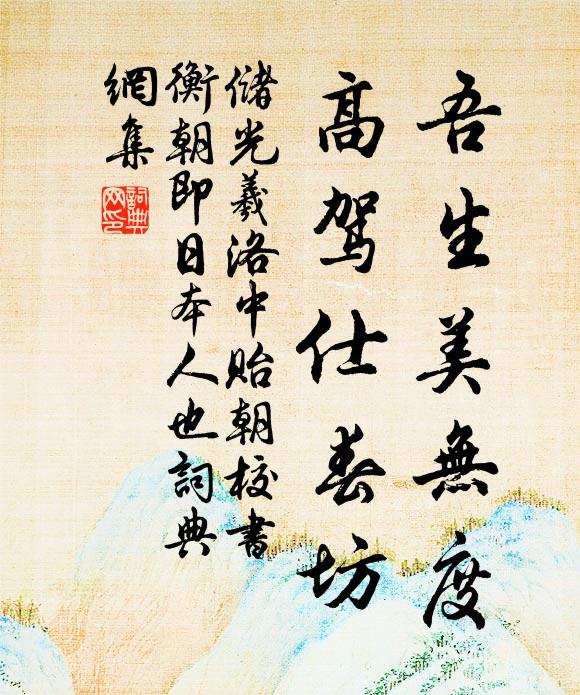 吾生美無度
高駕仕春坊
儲光羲洛中貽朝校書
衡朝即日本人也詞典
網集
詞典
网印